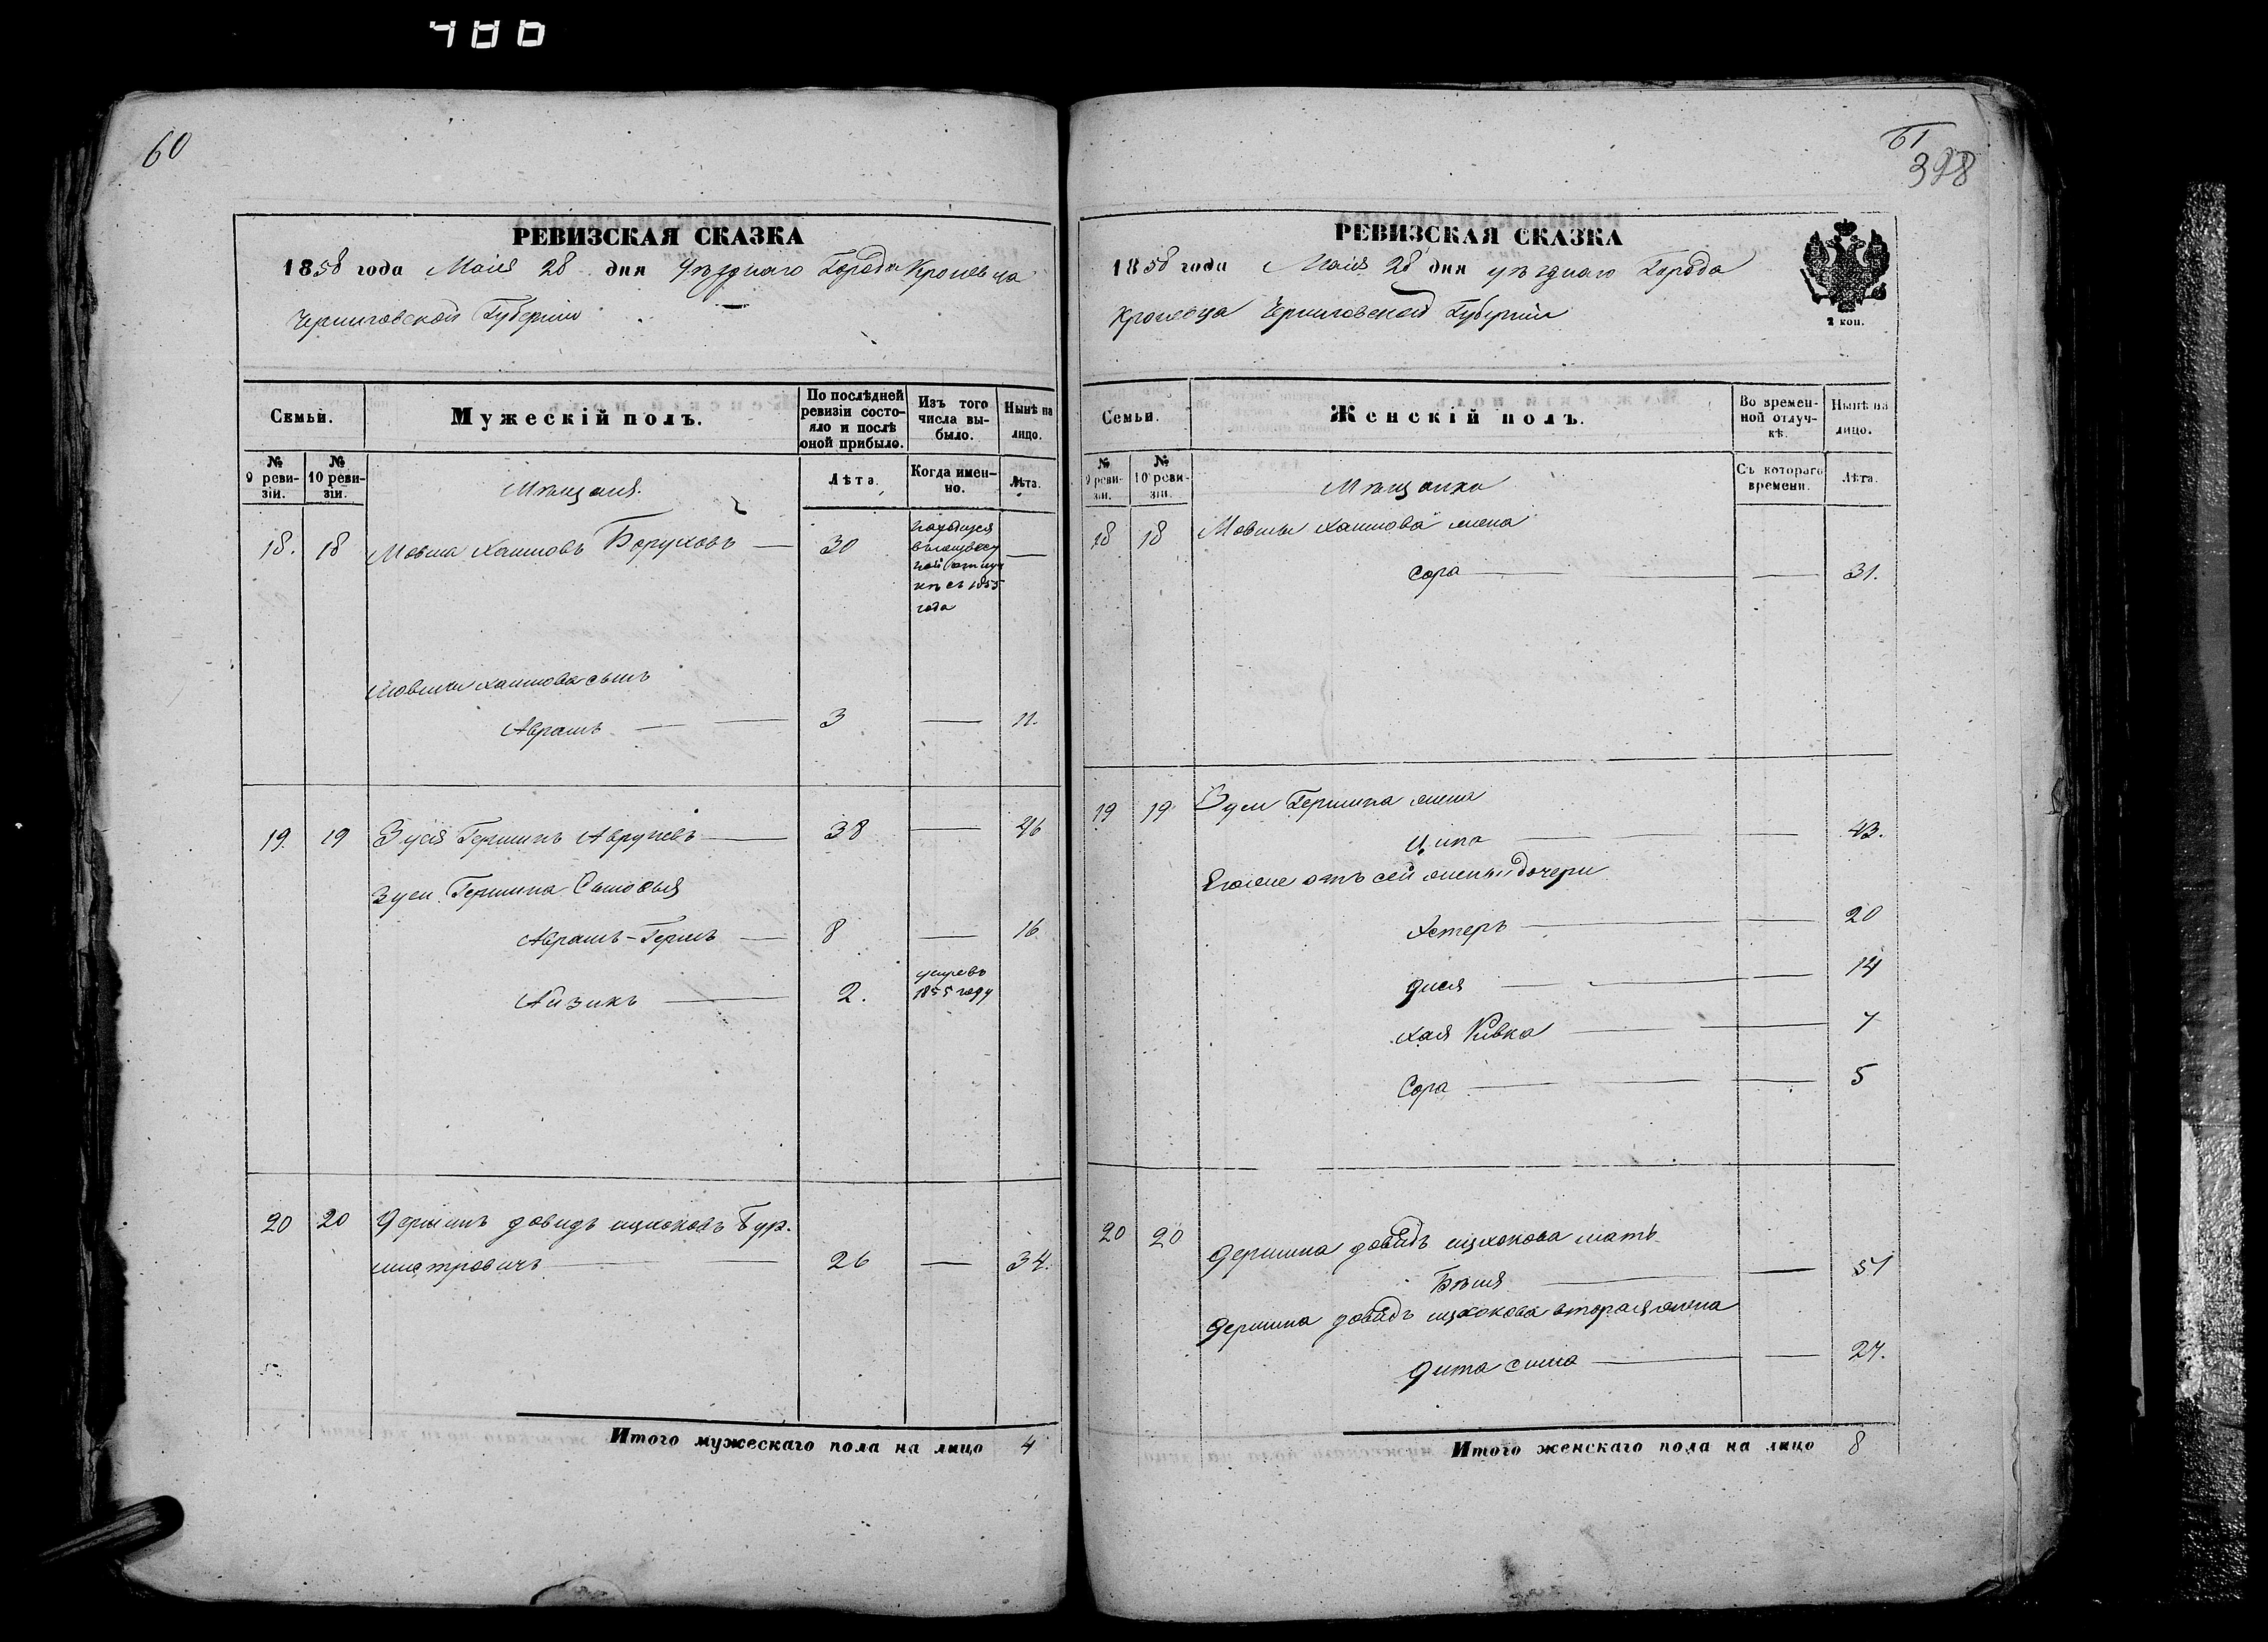 486
60
РЕВИЗСКАЯ СКАЗКА
1858 года Маія 28 дня Уѣзднаго Города Кролевца
Черниговской Губерніи
Семьи.
Мужескій полъ.
По послѣдней ревизіи состояло и послѣ оной прибыло.
Изъ того числа выбыло.
Нынѣ на лицо.
№ 9 ревизіи.
№ 10 ревизіи.
Мѣщане.
Лѣта.
Когда именно.
Лѣта.
18. 18 Мовша Хаимовъ Боруховъ — 30
находится
кѣ съ 1855
года
Мовши Хаимова сынъ
Абрамъ — 3 — 11.
19. 19 Зуся Гершинъ — 38 — 46
Зуси Гершина Сыновья
Абрамъ-Гершъ — 8 — 16
Айзикъ — 2. умре въ
1855 году
20 20 довидъ ицковъ Бур-
мистровичъ — 26 — 34.
Итого мужескаго пола на лицо 4
61
398
РЕВИЗСКАЯ СКАЗКА
1858 года Маія 28 дня уѣзднаго Города
Кролевца Черниговской Губерніи
2 коп.
Семьи.
Женскій полъ.
Во временной отлучкѣ.
Нынѣ на лицо.
№ 9 ревизіи.
№ 10 ревизіи.
Мѣщанки
Съ котораго времени.
Лѣта.
18 18 Мовши Хаимова жена
Сора — 31.
19 19 Зуси Гершина жена
Ципа — 43.
Его же отъ сей жены дочери
Эстеръ — 20
14
Хая Ривка — 7
Сора — 5
20 20 довидъ мать
51
довидъ вторая жена
27.
Итого женскаго пола на лицо 8